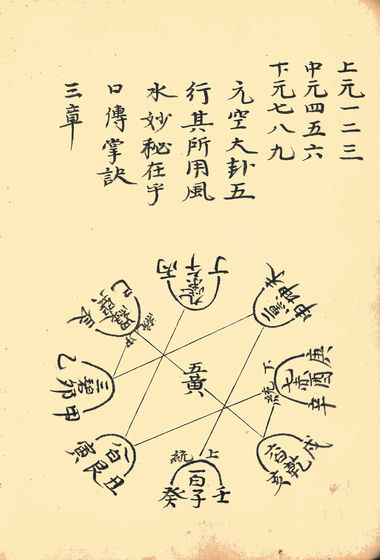 上元一二三
中元四五六
下元七八九
元空大卦五
行其所用風
水妙秘在乎
口傳掌訣
三章
丙午丁
九紫
未坤申
二
巳
辰
中統
五黃
庚酉辛
七赤
下統
甲卯乙
三碧
戌乾亥
六白
上統
一白
壬子癸
八白
丑艮寅